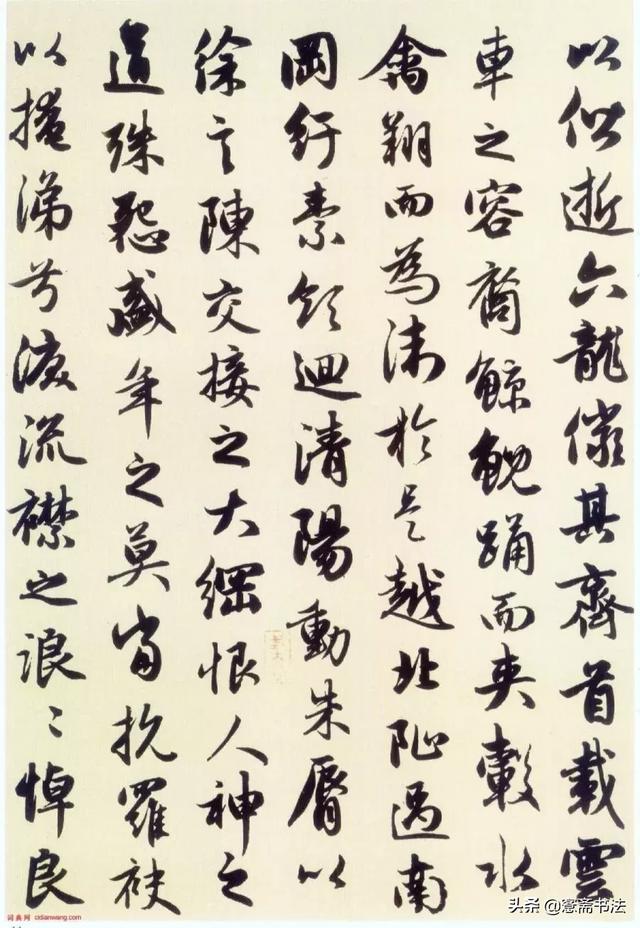 以偕逝六龍儼其齊首載雲
車之容裔鯨鯢踊而夾轂水
禽翔而為衛於是越北阯過南
岡紆素領迴清陽動朱脣以
徐言陳交接之大綱恨人神之
道殊怨盛年之莫當抗羅袂
以掩涕兮淚流襟之浪〻悼良
词典网 cidianwang.com
头条 @愙斋书法